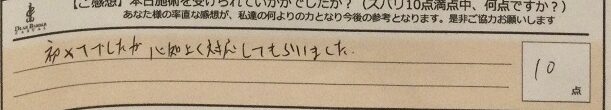 【ご感想】本日施術を受けられていかがでしたか？（ズバリ10点満点中、何点ですか？）
あなた様の率直な感想が、私達の何よりの力となり今後の参考となります。是非ご協力お願いします
初めてでしたが 心知よく対応してもらいました。
10
点